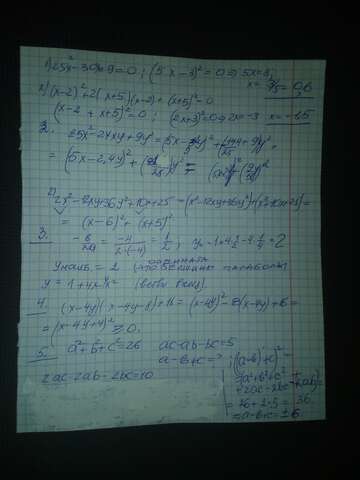 1) 25x² - 30x + 9 = 0; (5x - 3)² = 0 ⇒ 5x = 3,
x = 3/5 = 0,6
2) (x-2)² + 2(x+5)(x-2) + (x+5)² = 0
(x-2 + x+5)² = 0; (2x+3)² = 0 ⇒ 2x = -3 x = -1,5
2. 25x² - 24xy + 9y² = (5x -
= (5x - 2,4y)² +
2) 2x² - 12xy + 36y² + 10x + 25 = (x² - 12xy + 36y²) + (x² + 10x + 25) =
= (x-6)² + (x+5)²
3. -b/2a = -4/2·(-4) = 1/2; y = 1+4·1/2-4·1/4 = 2
Yнаиб. = 2 (ордината вершины параболы
y = 1+4x-4x² (ветви вниз)
4. (x-4y)(x-4y-8)+16 = (x-4y)² - 8(x-4y) + 16 =
= (x-4y+4)² ≥ 0.
5. a²+b²+c²=26 ac-ab-bc=5
a-b+c=? ((a-b)+c)² =
2ac-2ab-2bc=10
= a²+b²+c²
+2ac-2bc-2ab =
= 26+2·5 = 36
⇒ a-b+c = ±6